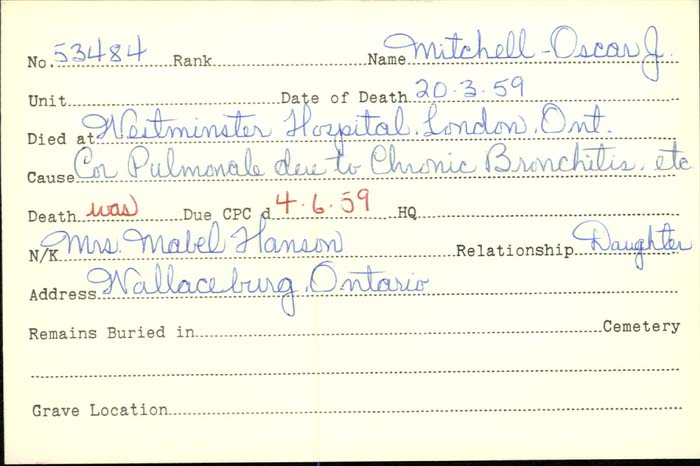 No. 53484 Rank Name Mitchell - Oscar J.
Unit Date of Death 20.3.59
Died at Westminster Hospital, London, Ont.
Cause Cor Pulmonale due to Chronic Bronchitis, etc
Death was Due CPC d 4.6.59 HQ
N/K Mrs. Mabel Hanson Relationship Daughter
Address Wallaceburg, Ontario
Remains Buried in Cemetery
Grave Location